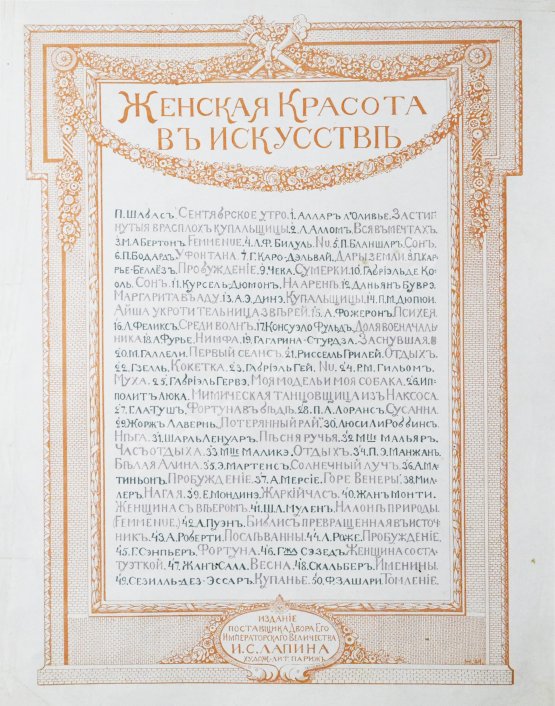 Женская Красота
въ искусствѣ
П. Шабасъ. Сентябрское утро. 1. Алларъ л'Оливье. Застиг
нутыя врасплохъ купальщицы. 2. Л. Аллом. Вся въ мечтахъ.
3. М. Абертонъ. Femme nue. 4. Л. Ф. Билуль. Nu. 5. П. Бланшаръ. Сонъ.
6. П. Бодардъ. У фонтана. 7. Г. Каро-Дэльвай. Дары земли. 8. П. Кар-
рье-Беллёзъ. Пробужденіе. 9. Чека. Сумерки. 10. Габріэль де Ко-
оль. Сонъ. 11. Курсель-Дюмонъ. На аренѣ. 12. Даньянъ Буврэ.
Маргарита въ аду. 13. А. Э. Динэ. Купальщицы. 14. П. М. Дюпюи.
Айша укротительница звѣрей. 15. А. Фожеронъ. Психея.
16. Л. Феликсъ. Среди волнъ. 17. Консуэло Фульдъ. Доля военачаль-
ника 18. А. Фурье. Нимфа. 19. Гагарина-Стурдза. Заснувшая.
20. М. Галлели. Первый сеансъ. 21. Риссель Грилей. Отдыхъ.
22. Гзелль. Кокетка. 23. Габріэль Гей. Nu. 24. Р. М. Гильом.
Муха. 25. Габріэль Гервэ. Моя модель и моя собака. 26. Ип-
политъ Люка. Мимическая танцовщица изъ Наксоса.
27. Глатушъ. Фортуна въ бѣдѣ. 28. П. А. Лорансъ. Сусанна.
29. Жоржъ Лавернь. Потерянный рай. 30. Люси Ли Роббинсъ.
Нѣга. 31. Шарль Ленуаръ. Пѣсня ручья. 32 Мш Мальяръ.
Часъ отдыха. 33 Мш Маликэ. Отдыхъ. 34. П. Э. Манжанъ.
Бѣлая Алина. 35. Э. Мартенсъ. Солнечный лучъ. 36. А. Ма-
тиньонъ. Пробужденіе. 37. А. Мерсіе. Горе Венеры. 38. Мил-
леръ. Нагая. 39. Е. Мондинэ. Жаркій часъ. 40. Жанъ Монти.
Женщина съ вѣеромъ. 41. Ш. Л. Муленъ. На лонѣ природы.
(Femme nue.) 42. А. Пуэнъ. Библисъ превращенная въ источ-
никъ. 43. А. Роберти. Послѣ ванны. 44. Л. Роже. Пробужденіе.
45. Г. Сэнпьеръ. Фортуна. 46. Гжа Сэзедъ. Женщина со ста-
туэткой. 47. Жанъ Сала. Весна. 48. Скальберъ. Именины.
49. Сезилль-дез-Эссаръ. Купанье. 50. Ф. Зашари. Томленіе.
изданіе
поставщика Двора Его
Императорскаго Величества
И. С. Лапина
Худож.-лит. Парижъ